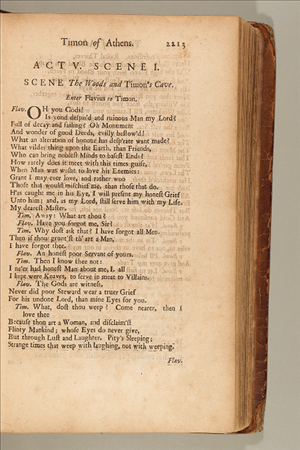 Timon of Athens. 2213
ACT V. SCENE I.
SCENE The Woods and Timon's Cave.
Enter Flavius to Timon.
Flav. OH you Gods!
Is yond despis'd and ruinous Man my Lord?
Full of decay and failing? Oh Monument
And wonder of good Deeds, evilly bestow'd!
What an alteration of honour has desp'rate want made?
What vilder thing upon the Earth, than Friends,
Who can bring noblest Minds to basest Ends?
How rarely does it meet with this times guise,
When Man was wisht to love his Enemies:
Grant I may ever love, and rather woo
Those that would mischief me, than those that do.
H'as caught me in his Eye, I will present my honest Grief
Unto him; and, as my Lord, still serve him with my Life.
My dearest Master.
Tim. Away! What art thou?
Flav. Have you forgot me, Sir?
Tim. Why dost ask that? I have forgot all Men.
Then if thou grant'st th'art a Man,
I have forgot thee.
Flav. An honest poor Servant of yours.
Tim. Then I know thee not:
I ne'er had honest Man about me, I, all
I kept were Knaves, to serve in meat to Villains.
Flav. The Gods are witness,
Never did poor Steward wear a truer Grief
For his undone Lord, than mine Eyes for you.
Tim. What, dost thou weep? Come nearer, then I
love thee
Because thou art a Woman, and disclaim'st
Flinty Mankind; whose Eyes do never give,
But through Lust and Laughter. Pity's Sleeping;
Strange times that weep with laughing, not with weeping.
Flav.